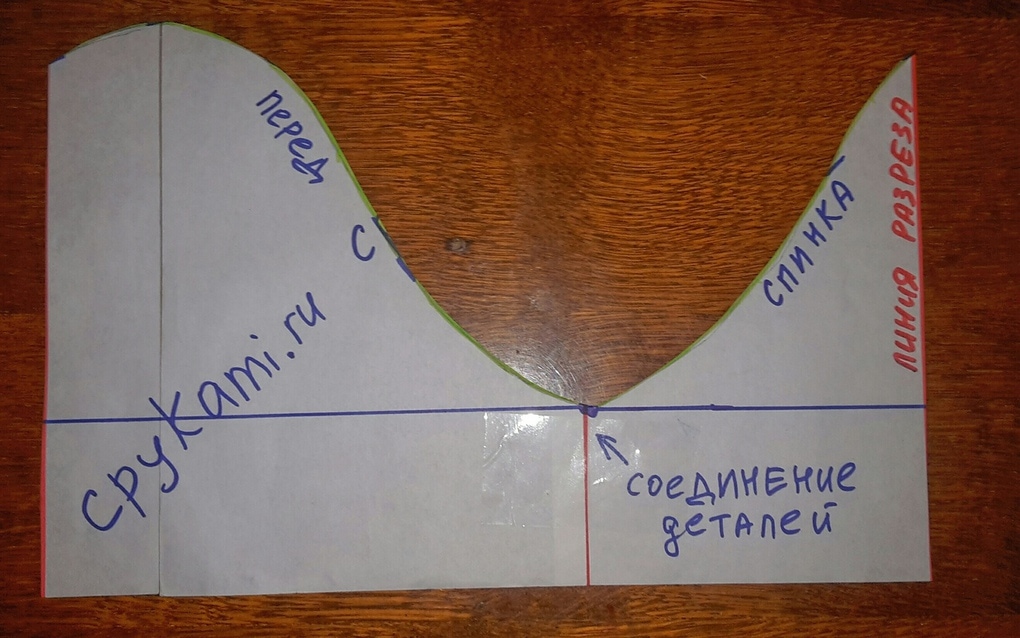 перед
С
СруКаmi.ru
спинка
ЛИНИЯ РАЗРЕЗА
СОЕДИНЕНИЕ
деталей